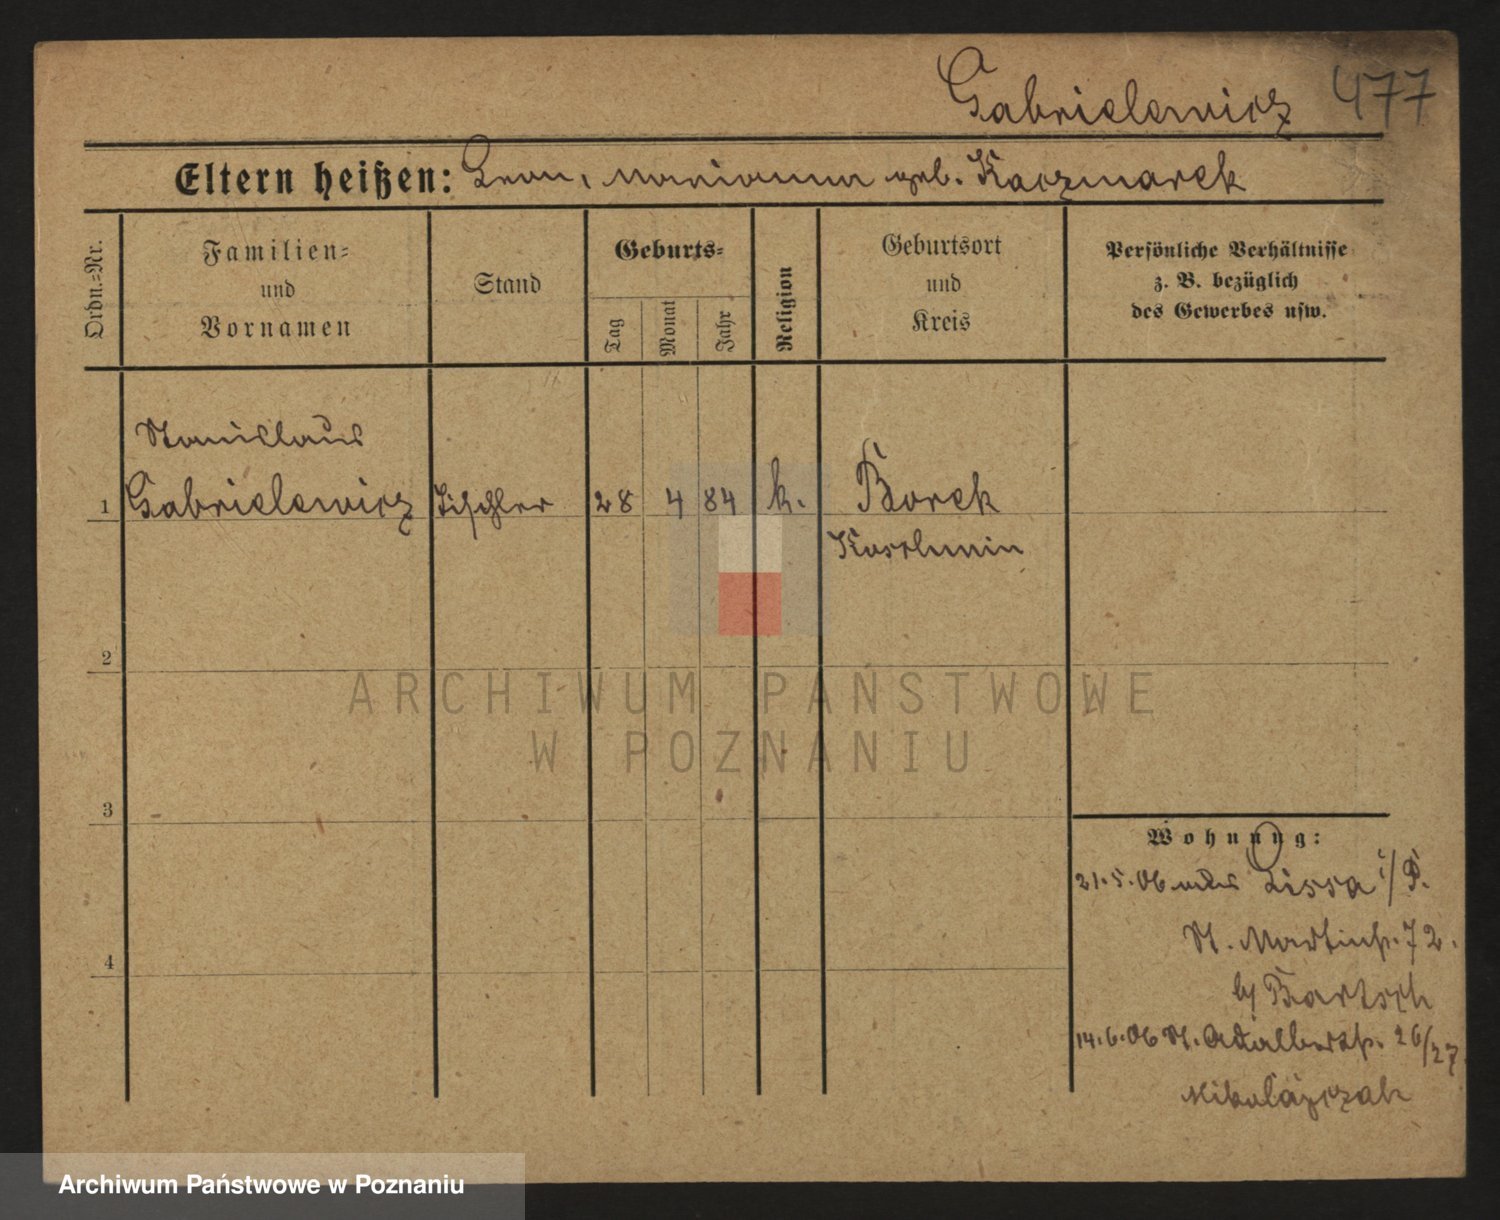 Gabrielewicz 477
Eltern heißen: Leon, Marianna geb. Kaczmarek
Ordn.-Nr.
Familien-
und
Vornamen
Stand
Geburts-
Tag
Monat
Jahr
Religion
Geburtsort
und
Kreis
Persönliche Verhältnisse
z. B. bezüglich
des Gewerbes usw.
Stanislaus
1 Gabrielewicz Tischler 28 4 84 k. Borek
Koschmin
2
3
4
Wohnung:
21.5.06 Lissa i/P.
St. Martinstr. 72.
by Bartsch
14.6.06 St. Adalbertstr. 26/27
Mikolajczak
ARCHIWUM PAŃSTWOWE
W POZNANIU
Archiwum Państwowe w Poznaniu